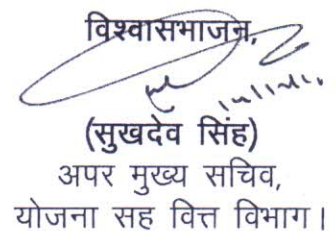 विश्वासभाजन,
(सुखदेव सिंह)
अपर मुख्य सचिव,
योजना सह वित्त विभाग।